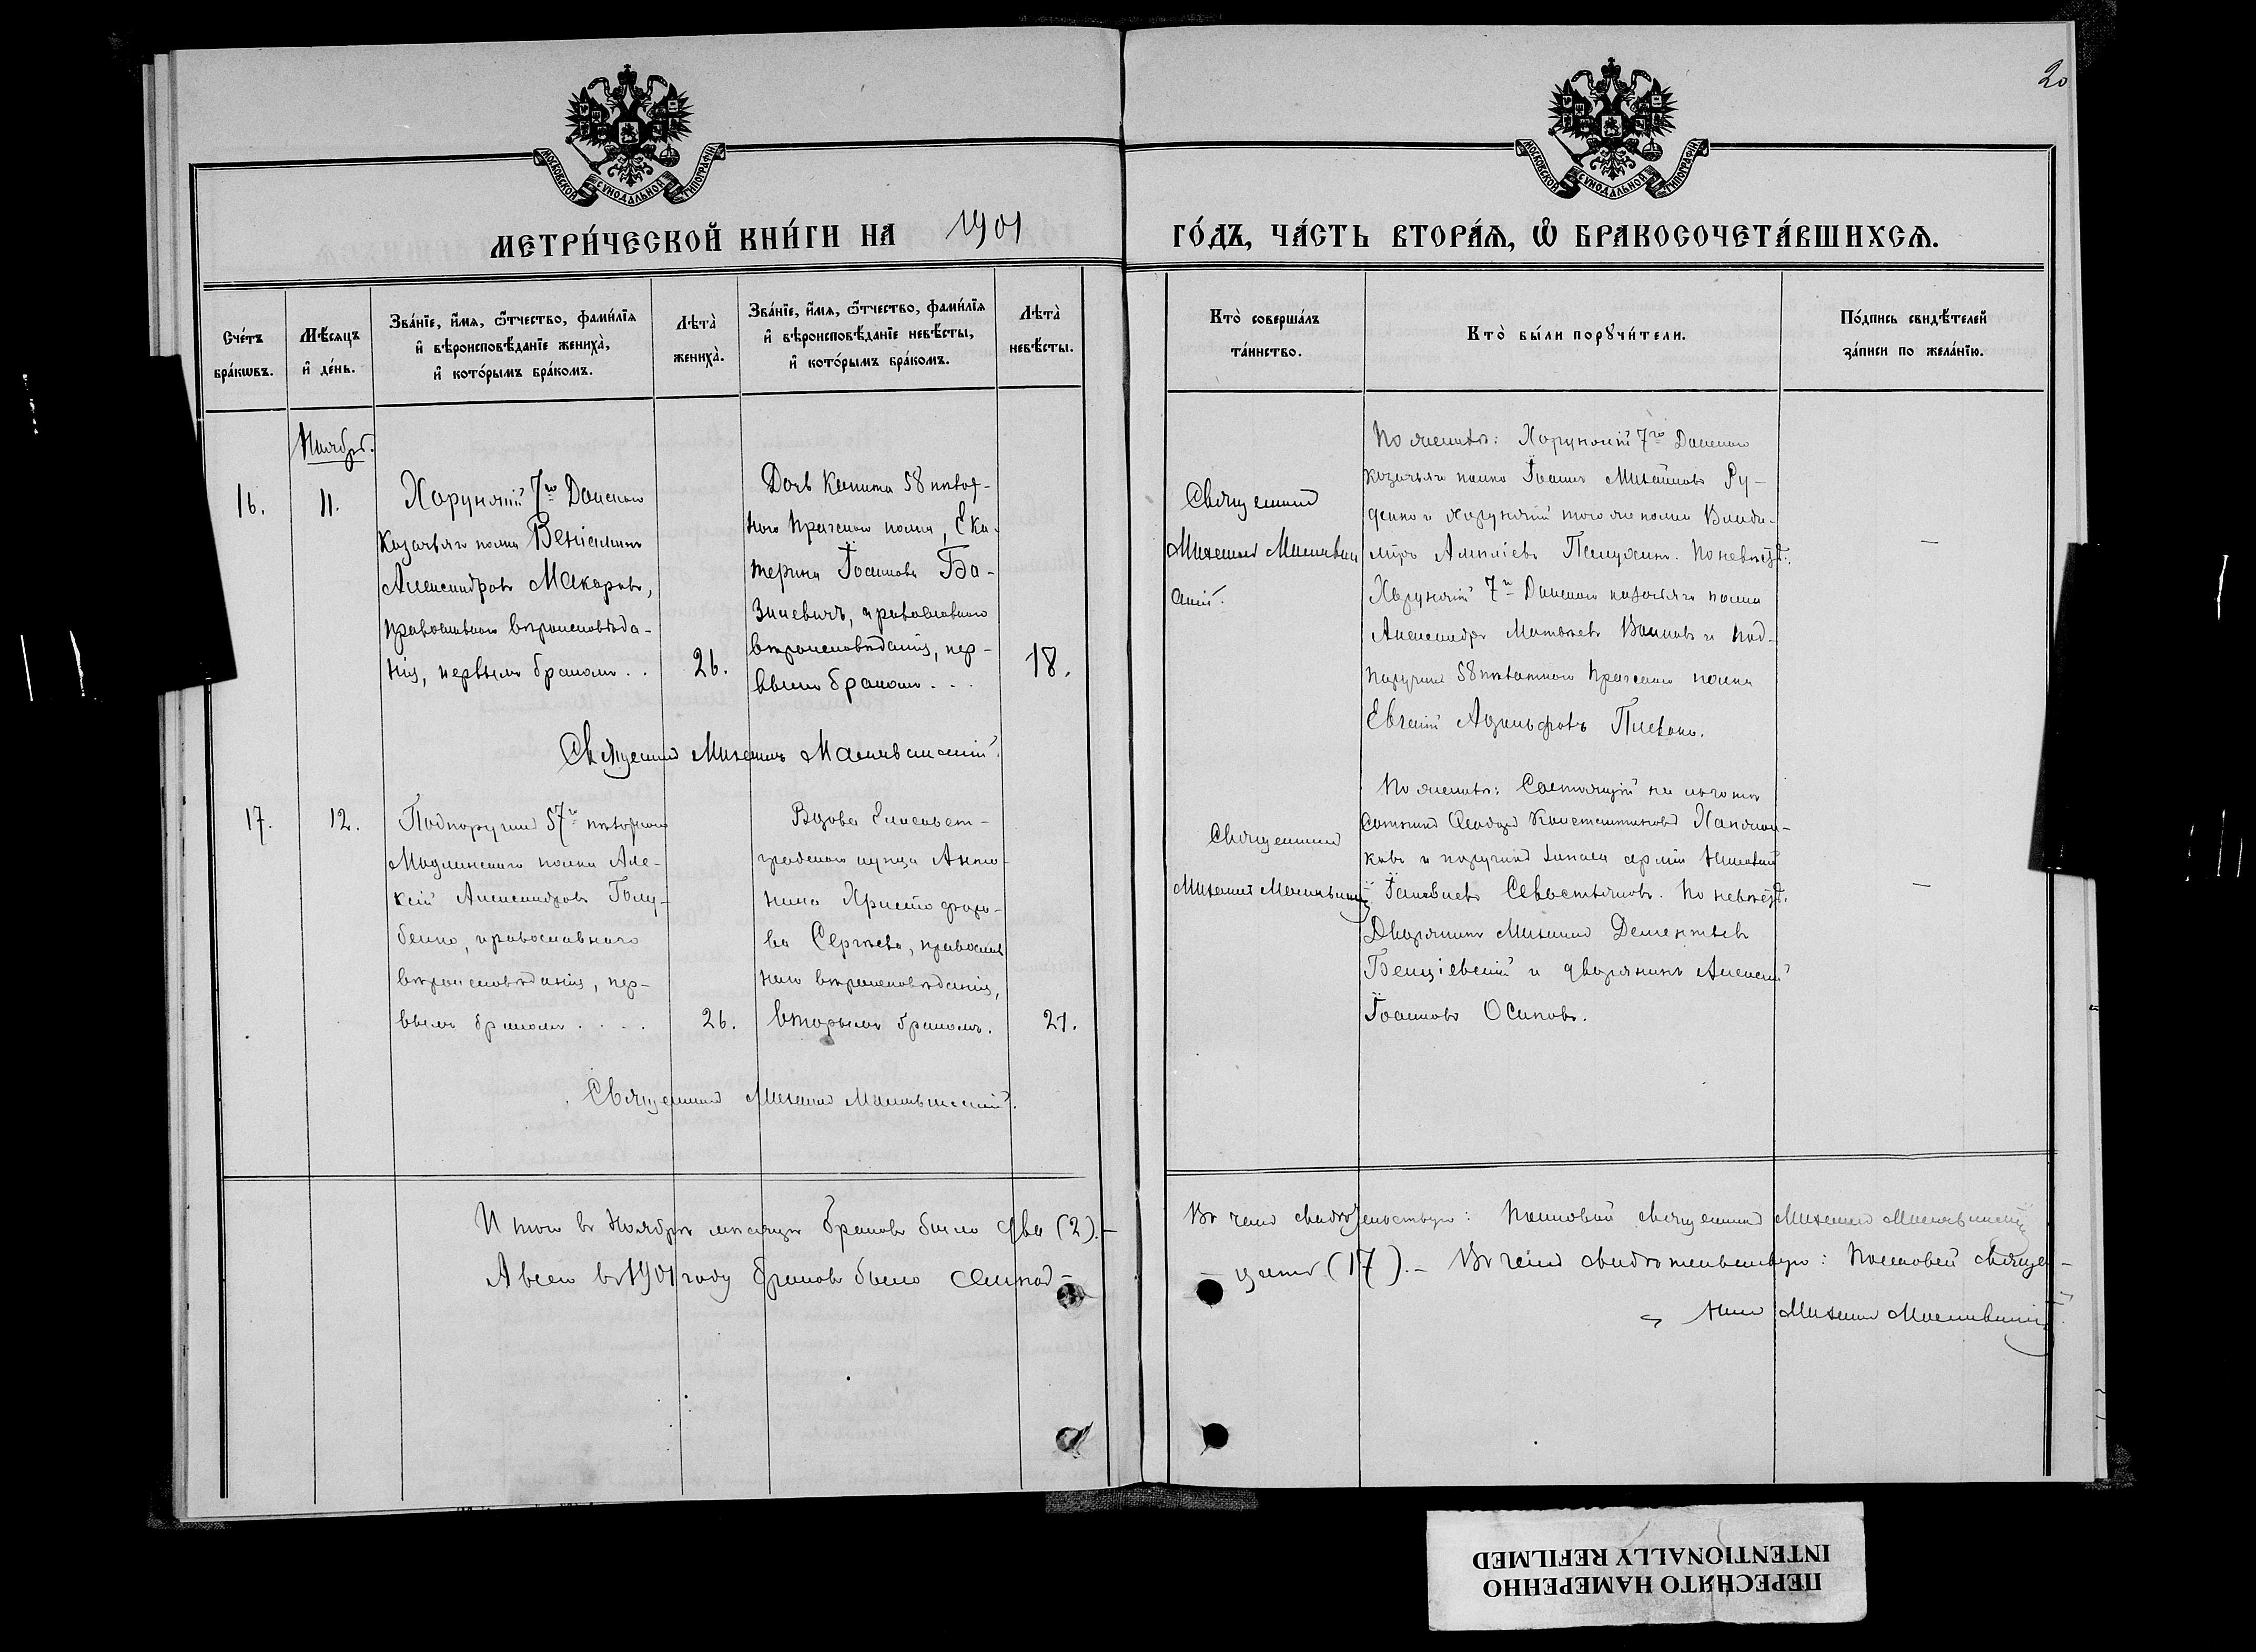 20
МОСКОВСКОЙ СѴНОДАЛЬНОЙ ТИПОГРАФІИ
МОСКОВСКОЙ СѴНОДАЛЬНОЙ ТИПОГРАФІИ
МЕТРИ́ЧЕСКОЙ КНИ́ГИ НА 1901
ГО́ДЪ, ЧА́СТЬ ВТОРА́Ѧ, Ѽ БРАКОСОЧЕТА́ВШИХСѦ.
Сче́тъ
бра́кѡвъ.
Мѣ́сяцъ
и҆ де́нь.
Зва́нїе, и҆́мя, ѻ҆́тчество, фами́лїя
и҆ вѣроисповѣ́данїе жениха̀,
и҆ кото́рымъ бра́комъ.
Лѣта̀
жениха̀.
Зва́нїе, и҆́мя, ѻ҆́тчество, фами́лїя
и҆ вѣроисповѣ́данїе невѣ́сты,
и҆ кото́рымъ бра́комъ.
Лѣта̀
невѣ́сты.
Кто̀ соверша́лъ
та́инство.
Кто̀ бы́ли порꙋчи́тели.
По́дпись свидѣ́телей
за́писи по жела́нїю.
Ноябрь.
16.
11.
Хорунжій 7го Донского
козачьяго полка Веніаминъ
Александровъ Макаровъ,
православнаго вѣроисповѣда-
нія, первымъ бракомъ . .
26.
Дочь капитана 58 пѣхот-
наго Прагскаго полка, Ека-
терина Іоаннова Ба-
зилевичъ, православнаго
вѣроисповѣданія, пер-
вымъ бракомъ . . .
18.
Священникъ Михаилъ
По женихѣ: Хорунжій 7го Донского
козачьяго полка Іоаннъ Михайловъ Ру-
денко и хорунжій того же полка Влади-
міръ По невѣстѣ:
Хорунжій 7го Донского козачьяго полка
Александръ Матвѣевъ и под-
поручикъ 58 пѣхотнаго Прагскаго полка
Евгеній Адольфовъ
Священникъ
Михаилъ
17.
12.
Подпоручикъ 57го пѣхотнаго
Модлинскаго полка Але-
ксій Александровъ Голу-
бенко, православнаго
вѣроисповѣданія, пер-
вымъ бракомъ . . . .
26.
Вдова Елисавет-
градскаго купца Анто-
нина Христофоро-
ва Сергѣева, православ
наго вѣроисповѣданія,
вторымъ бракомъ.
21.
Священникъ Михаилъ
Священникъ
Михаилъ
По женихѣ: Состоящій на льготѣ
сотникъ Константиновъ
и поручикъ запаса арміи Николай
Севостьяновъ. По невѣстѣ:
Дворянинъ Михаилъ Дементьевъ
и дворянинъ Алексій
Іоанновъ Осиповъ.
Итого въ Ноябрѣ мѣсяцѣ браковъ было два (2).—
А всего въ 1901 году браковъ было семнад-
Въ чемъ свидѣтельствую: Полковой священникъ Михаилъ
— цать (17).— Въ чемъ свидѣтельствую: Полковой священ-
никъ Михаилъ
ПЕРЕСНЯТО НАМЕРЕННО
INTENTIONALLY REFILMED